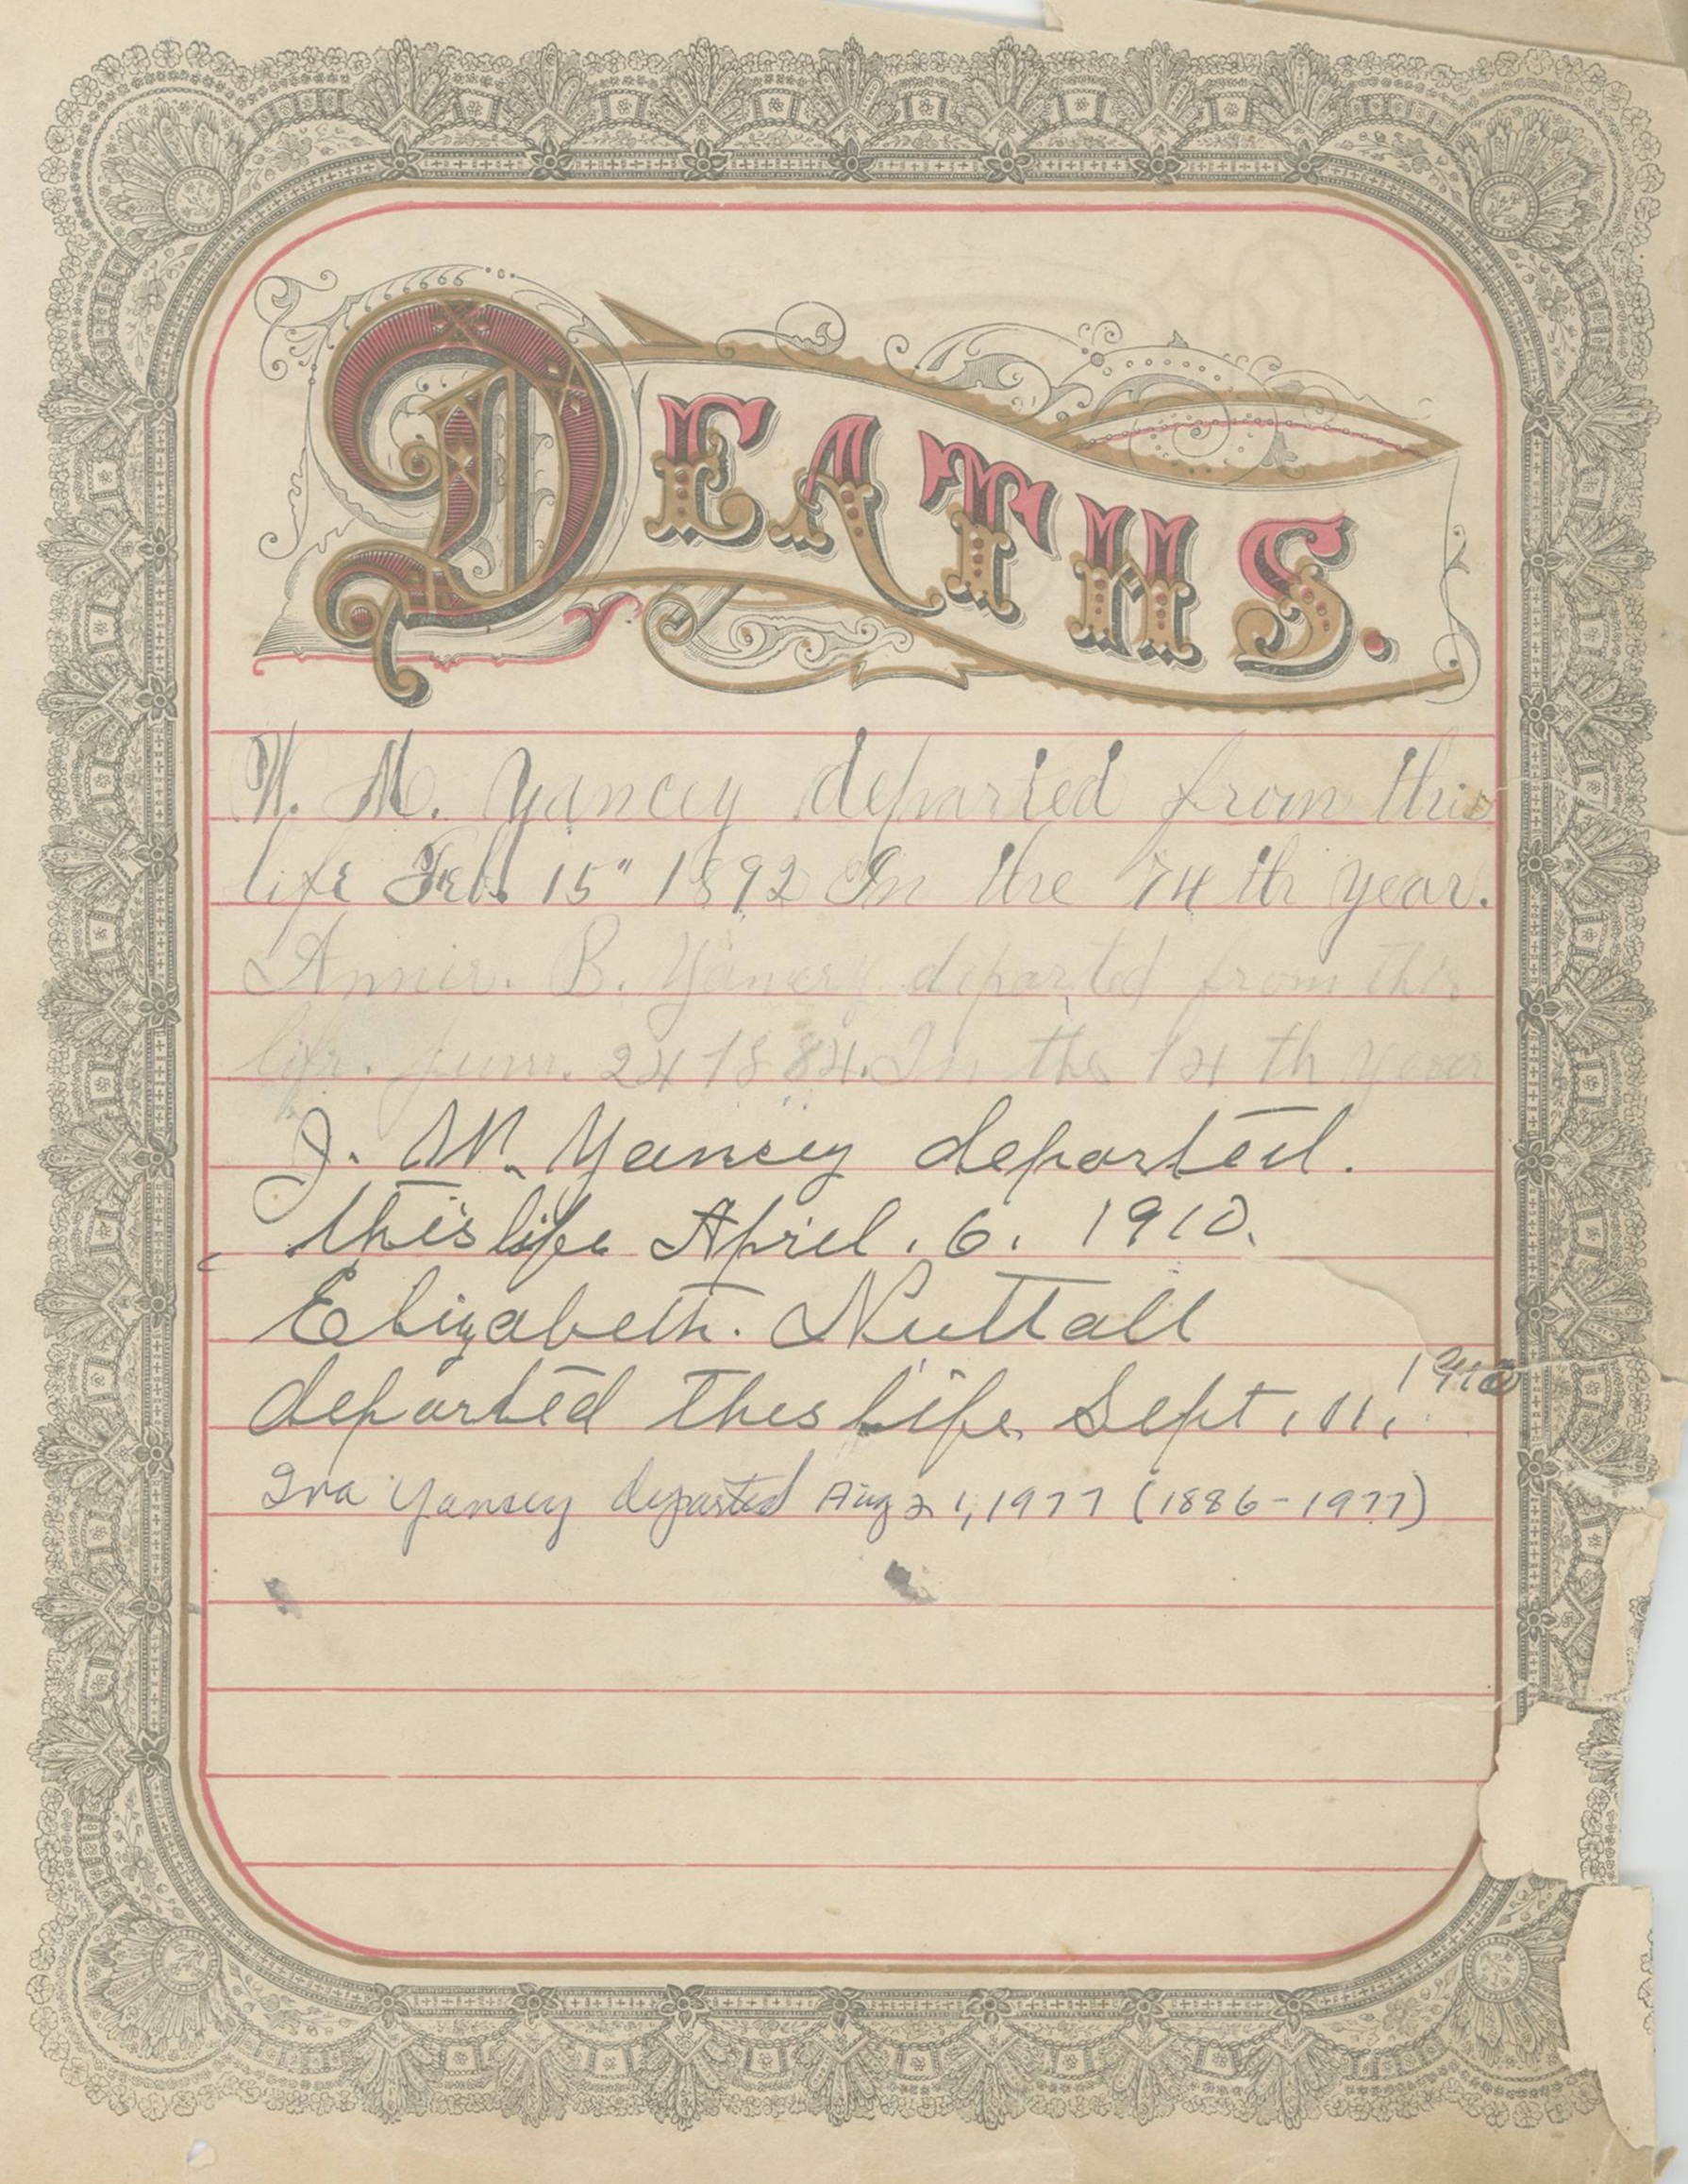 DEATHS.
W. M. Yancey departed from this
life Feb. 15" 1892 In the 74 th year.
Annie. B. Yancey departed from this
life. June. 24 1884. In the 14 th year
J. W. Yancey departed.
this life April. 6. 1910.
Elizabeth. Nuttall
departed this life Sept, 11, 1910
Iva Yancey departed Aug 21, 1977 (1886-1977)